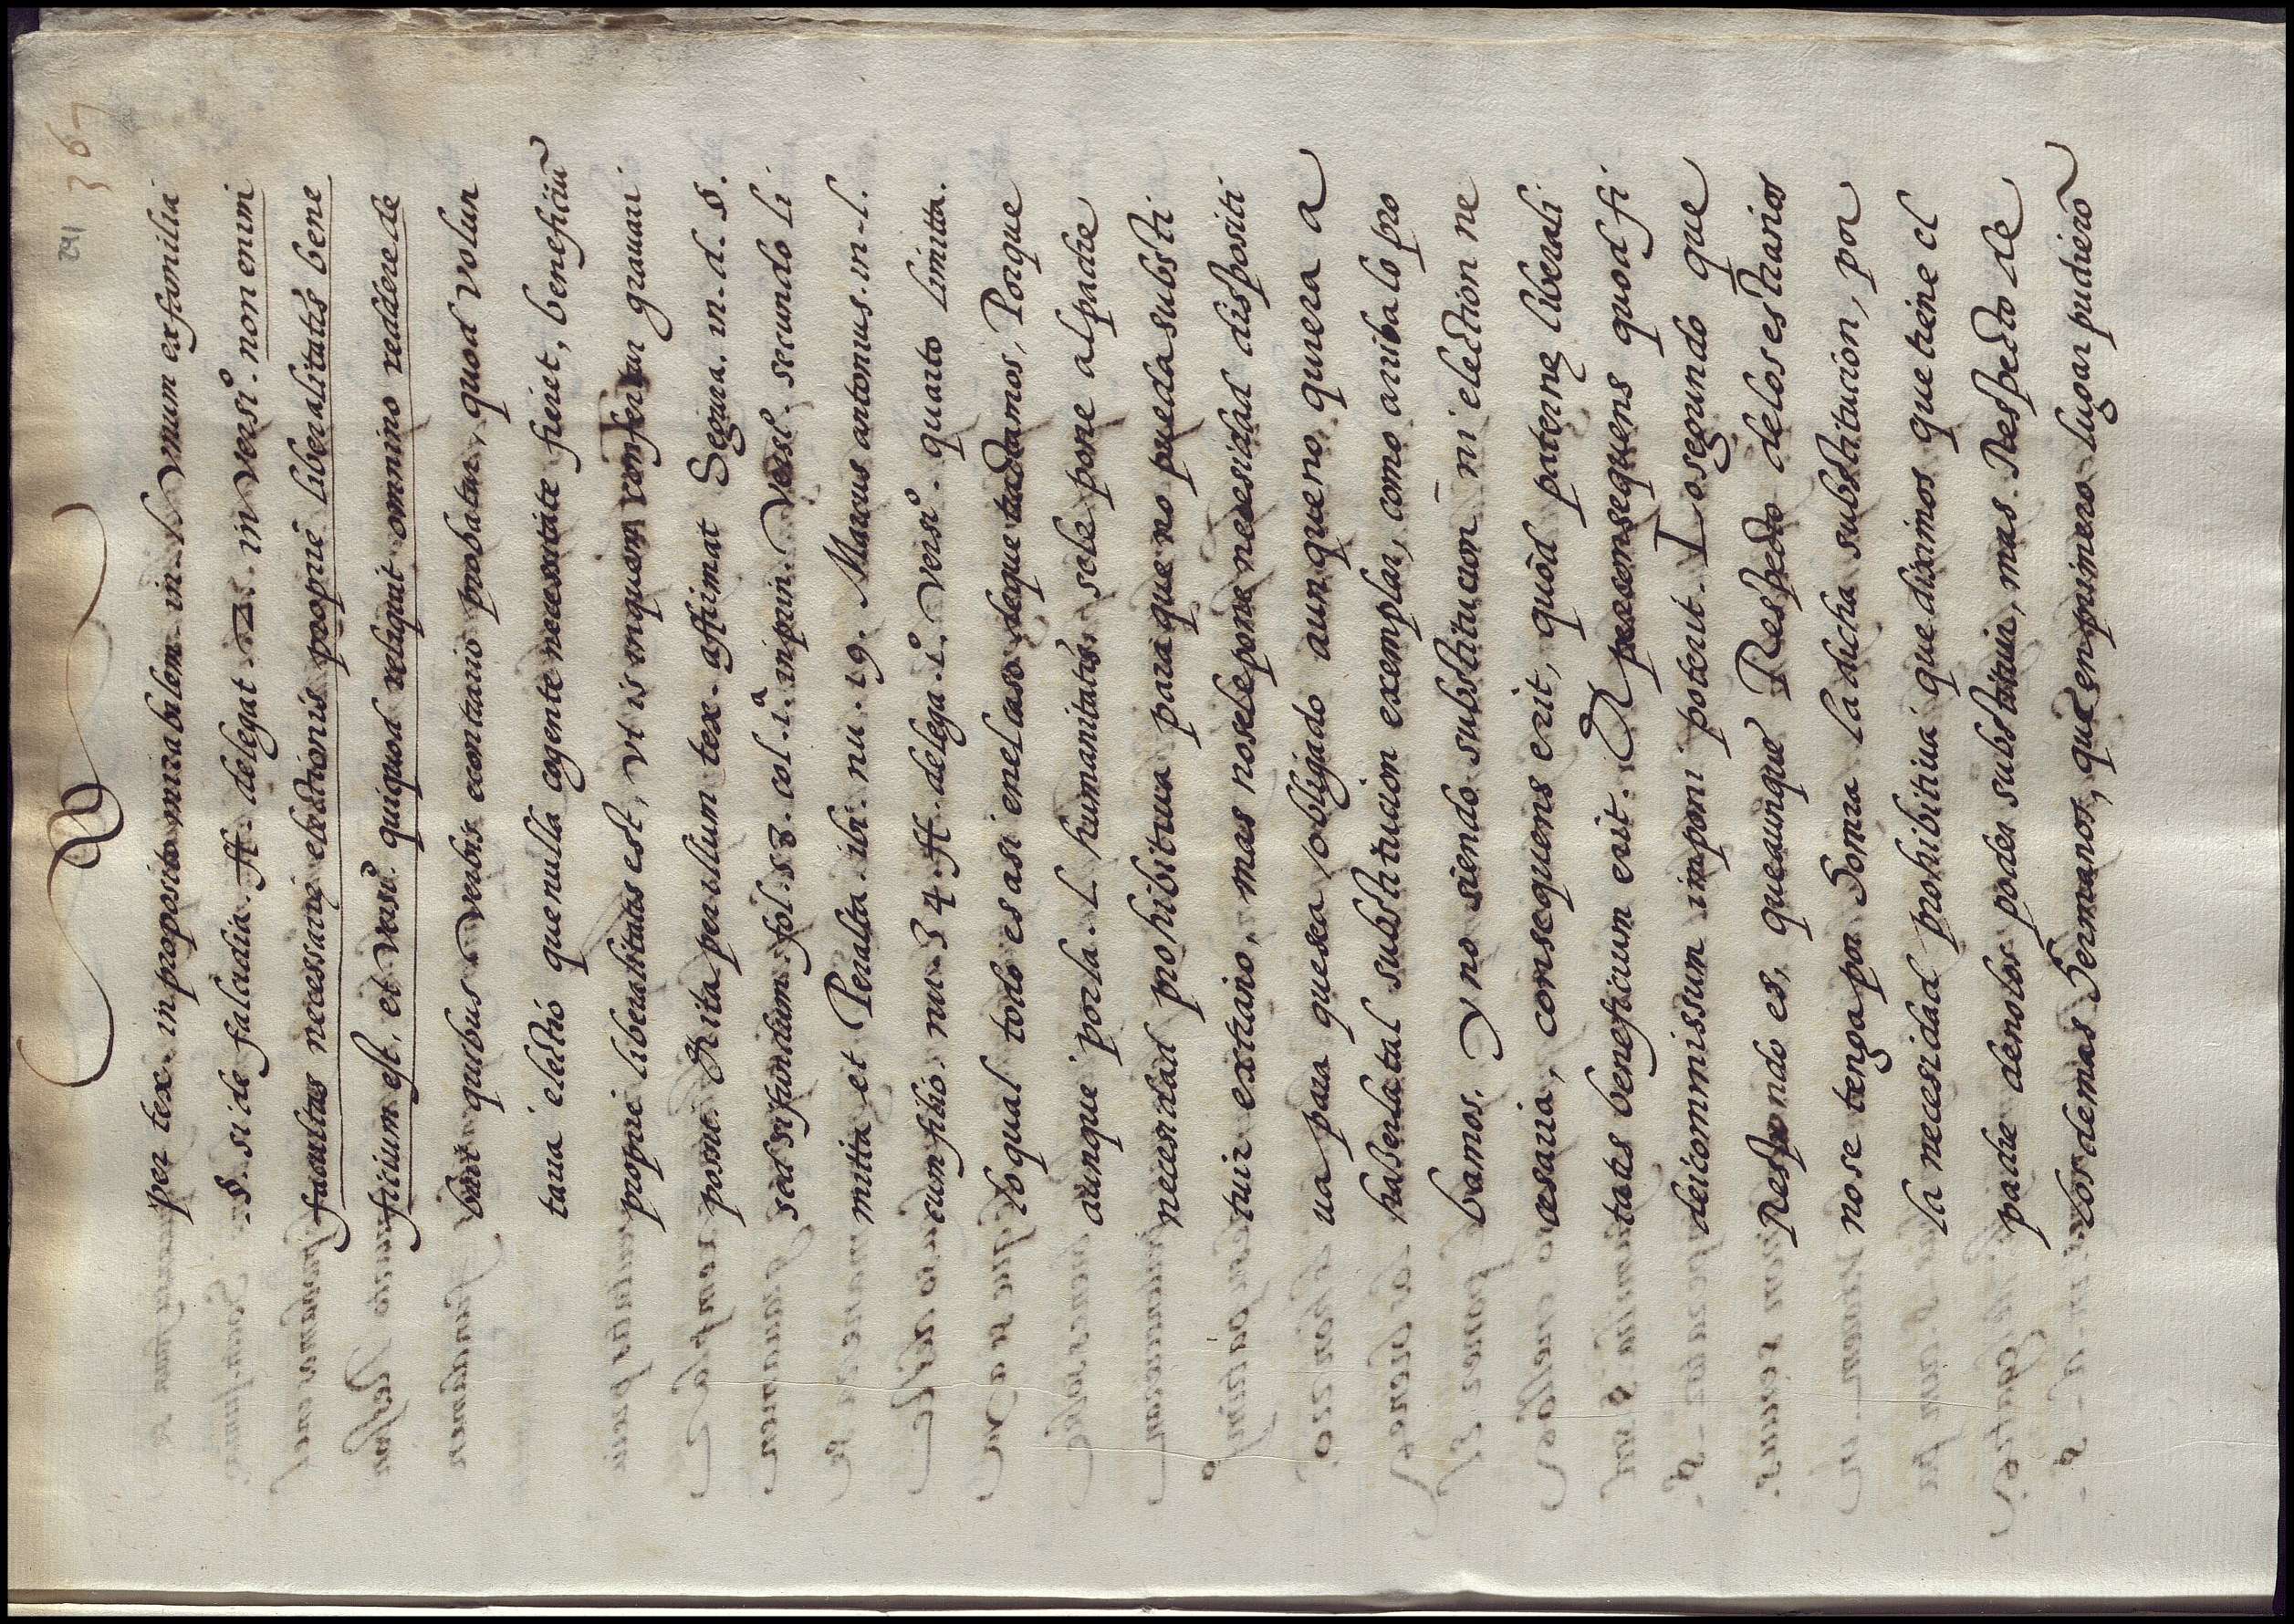 367
per tex. in proposito mirabilem in. l. Vnum ex familia
.§. si de falcidia. ff. de legat. 2. in versi.º non enim
facultas necessarię electionis propriè liberalitatis bene
ficium est, et versi.º quiquod relaquit omnino reddere de
buit quibus verbis econtrario probatur, quod volun
taria electio que nulla cogente necessitate fieret, beneficiũ
proprie liberalitatis est, vt is inquem confertur grauari
possit. & ita per illum tex. affirmat Segura. in. d. §.
sed si fundum. fol. 53. col. 1.ª in prin. versi.º secundo li
mitta et Peralta ibi. nu. 19. Marcus antonius. in. l.
cum filio. nu. 34 ff. de lega. 1.º versi.º quarto limita.
lo qual todo es asi en el caso de que tractamos, Porque
aunque por la. L. humanitatis. se le pone al padre
necesidad prohibitiua para que no pueda substi
tuir extraño, mas no se le pone necesidad dispositi
ua para que sea obligado aunque no quiera a
haserla tal substitucion exemplar, como arriba lo pro
bamos. Y no siendo substitucion ni election ne
cesaria, consequens erit, quòd paternę liberali
tatis beneficium erit. & per consequens quod fi
deicommissum imponi poterit. Lo segundo que
Respondo es, que aunque Respecto de los estraños
no se tenga por Honrra la dicha substitucion, por
la necesidad prohibitiua que diximos que tiene el
padre de no los poder substituir, mas Respecto de
los demas Hermanos, que en primero lugar pudierõ